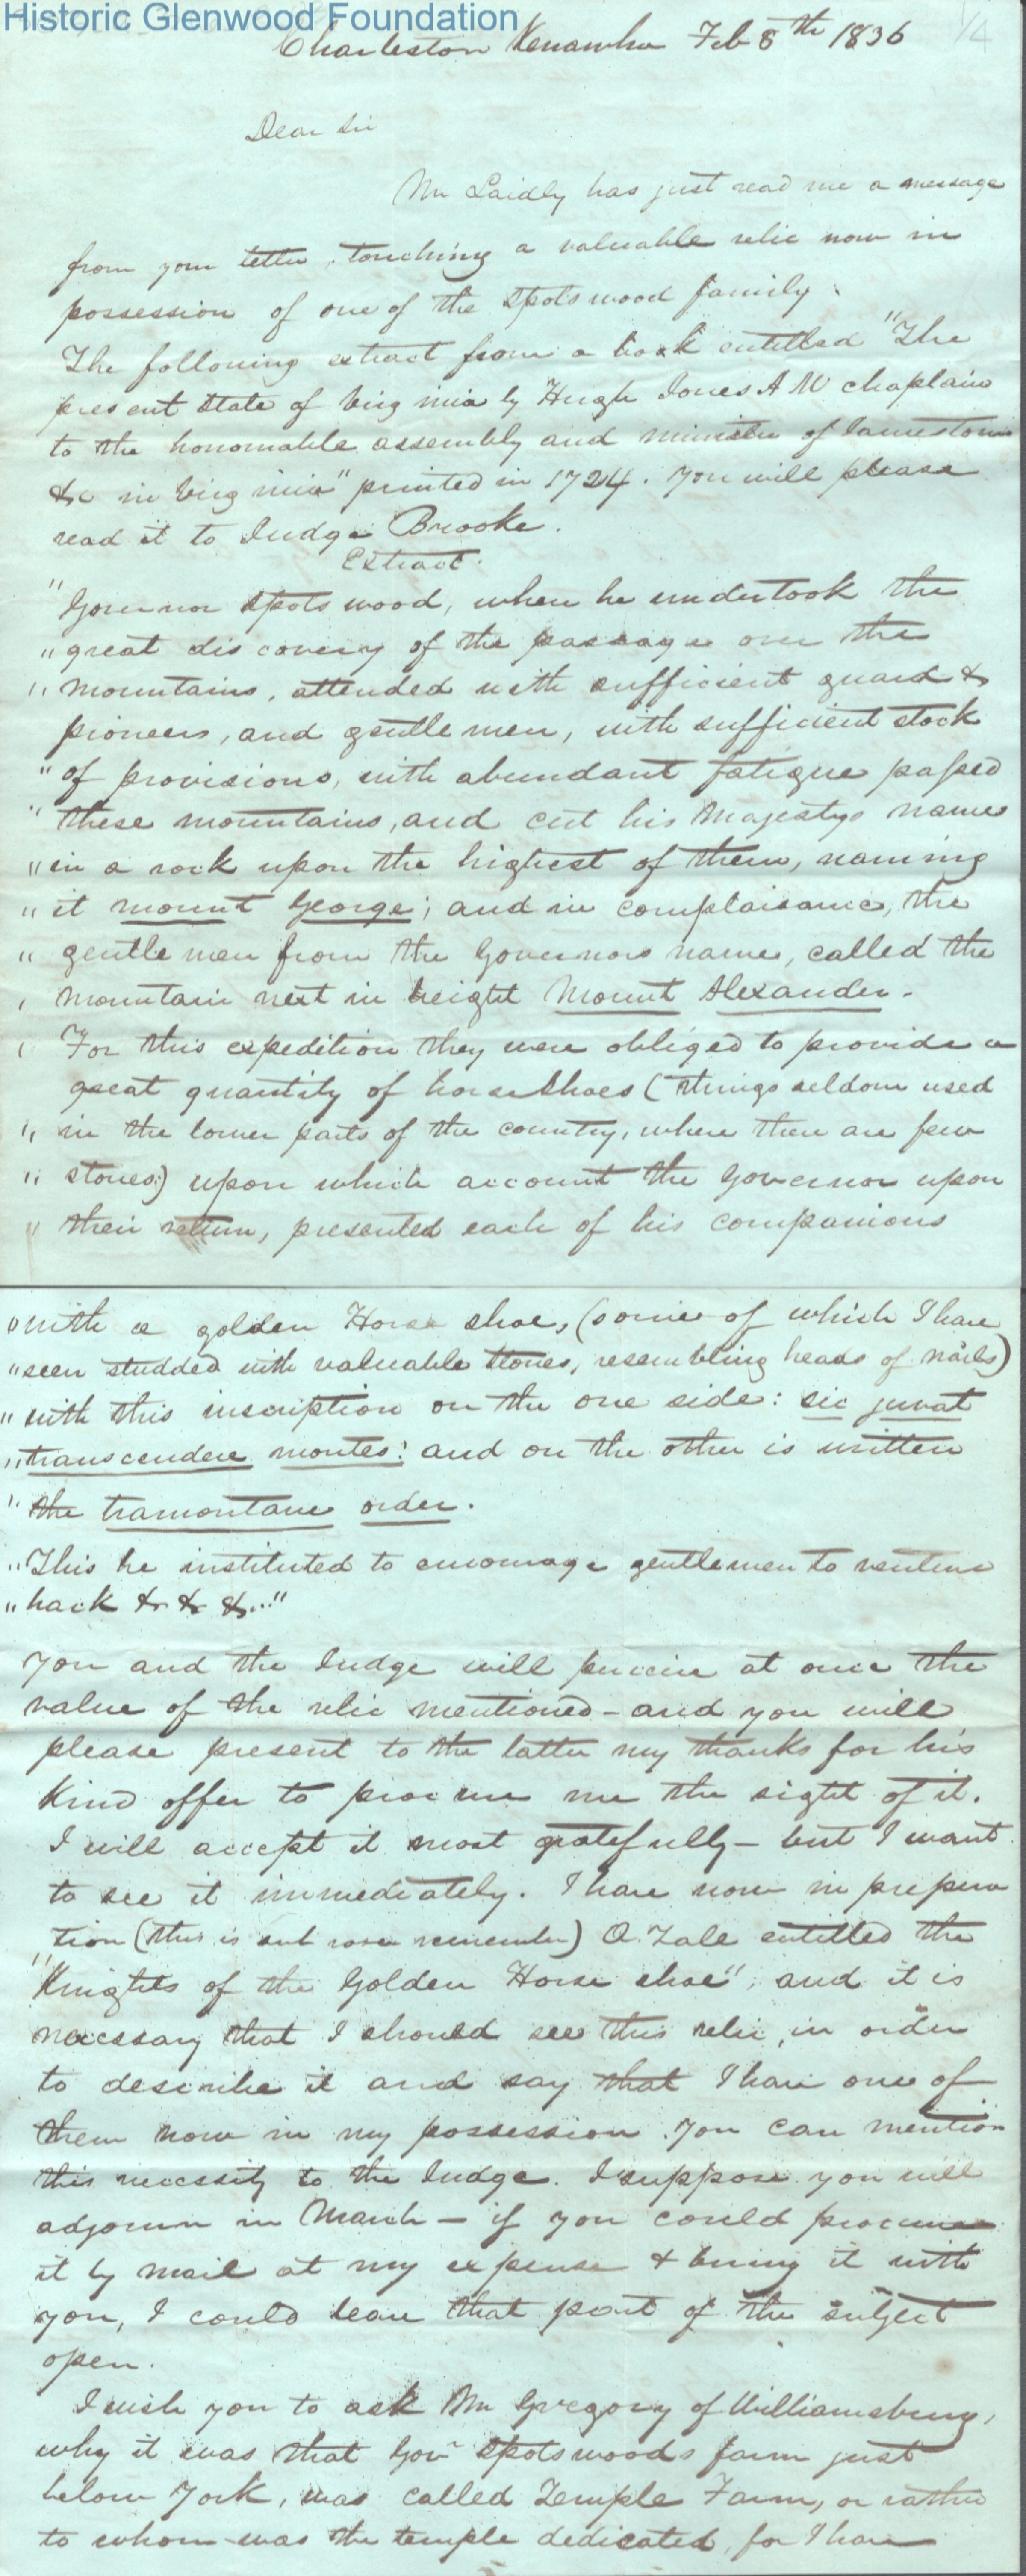 Historic Glenwood Foundation
1/4
Charleston Kenawha Feb 8th 1836
Dear Sir
Mr Laidly has just read me a message
from your letter, touching a valuable relic now in
possession of one of the Spotswood family.
The following extract from a book entitled "The
present state of Virginia by Hugh Jones A M chaplain
to the honorable assembly and minister of Jamestown
&c in Virginia" printed in 1724. You will please
read it to Judge Brooke.
Extract.
"Governor Spotswood, when he undertook the
"great discovery of the passage over the
"mountains, attended with sufficient guard &
pioneers, and gentlemen, with sufficient stock
"of provisions, with abundant fatigue passed
"these mountains, and cut his Majestys name
"in a rock upon the highest of them, naming
"it mount George; and in complaisance, the
"gentlemen from the Governors name, called the
' mountain next in height Mount Alexander.
' For this expedition they were obliged to provide a
great quantity of horse shoes (things seldom used
"in the lower parts of the country, where there are few
"stones) upon which account the Governor upon
"their return, presented each of his companions
"with a golden Horse shoe, (some of which I have
"seen studded with valuable stones, resembling heads of nails)
"with this inscription on the one side: sic juvat
"transcendere montes: and on the other is written
"the tramontane order.
"This he instituted to encourage gentlemen to venture
"back & & &..."
You and the Judge will perceive at once the
value of the relic mentioned - and you will
please present to the latter my thanks for his
kind offer to procure me the sight of it.
I will accept it most gratefully - but I want
to see it immediately. I have now in prepera
tion (this is sub rosa remember) A Tale entitled the
"Knights of the Golden Horse shoe", and it is
necessary that I should see this relic, in order
to describe it and say that I have one of
them now in my possession. You can mention
this necessity to the Judge. I suppose you will
adjourn in March - if you could procure
it by mail at my expense & bring it with
you, I could leave that part of the subject
open.
I wish you to ask Mr Gregory of Williamsburg,
why it was that Govr Spotswoods farm just
below York, was called Temple Farm, or rather
to whom was the temple dedicated, for I have